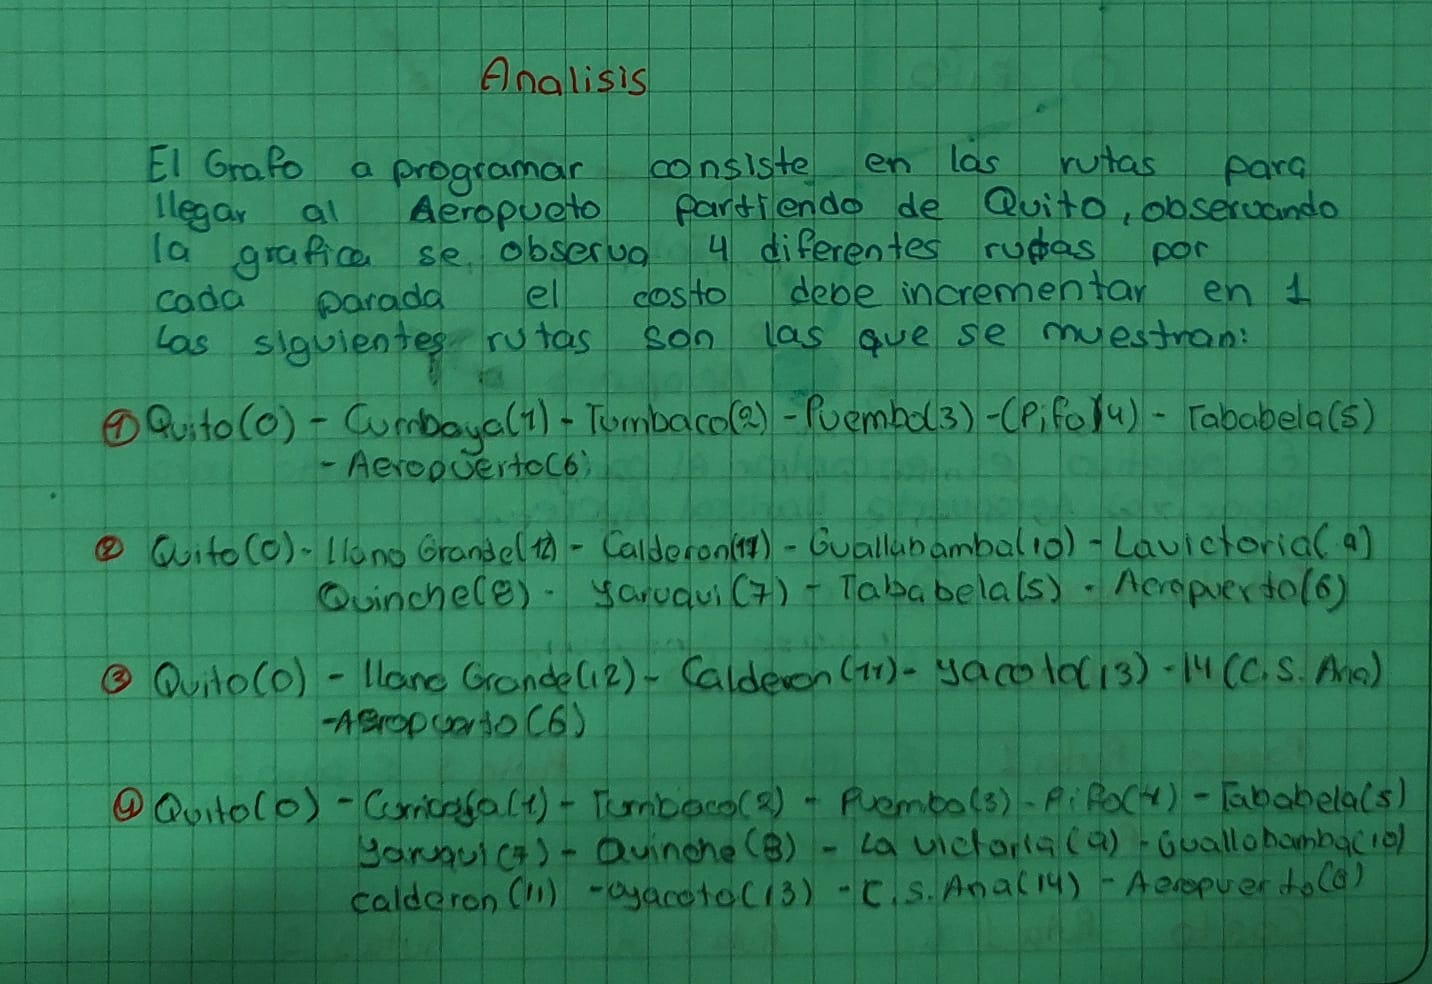 Analisis
El Grafo a programar consiste en las rutas para
llegar al Aeropueto partiendo de Quito, observando
la grafica se observa 4 diferentes rutas por
cada parada el costo debe incrementar en 1
Las siguientes rutas son las que se muestran:
① Quito(0) - Cumbaya(1) - Tumbaco(2) - Puembo(3) - (Pifo)(4) - Tababela(5)
- Aeropuerto(6)
② Quito(0) - llano Grande(12) - Calderon(11) - Guallabamba(10) - Lavictoria(9)
Quinche(8) - yaruqui(7) - Tababela(5) - Aeropuerto(6)
③ Quito(0) - llano Grande(12) - Calderon(11) - yacoto(13) - 14 (C.S. Ana)
- Aeropuerto(6)
④ Quito(0) - (1) - Tumbaco(2) - Puembo(3) - Pifo(4) - Tababela(5)
yaruqui(7) - Quinche(8) - La victoria(9) - Guallabamba(10)
calderon(11) - oyacoto(13) - C.S. Ana(14) - Aeropuerto(6)